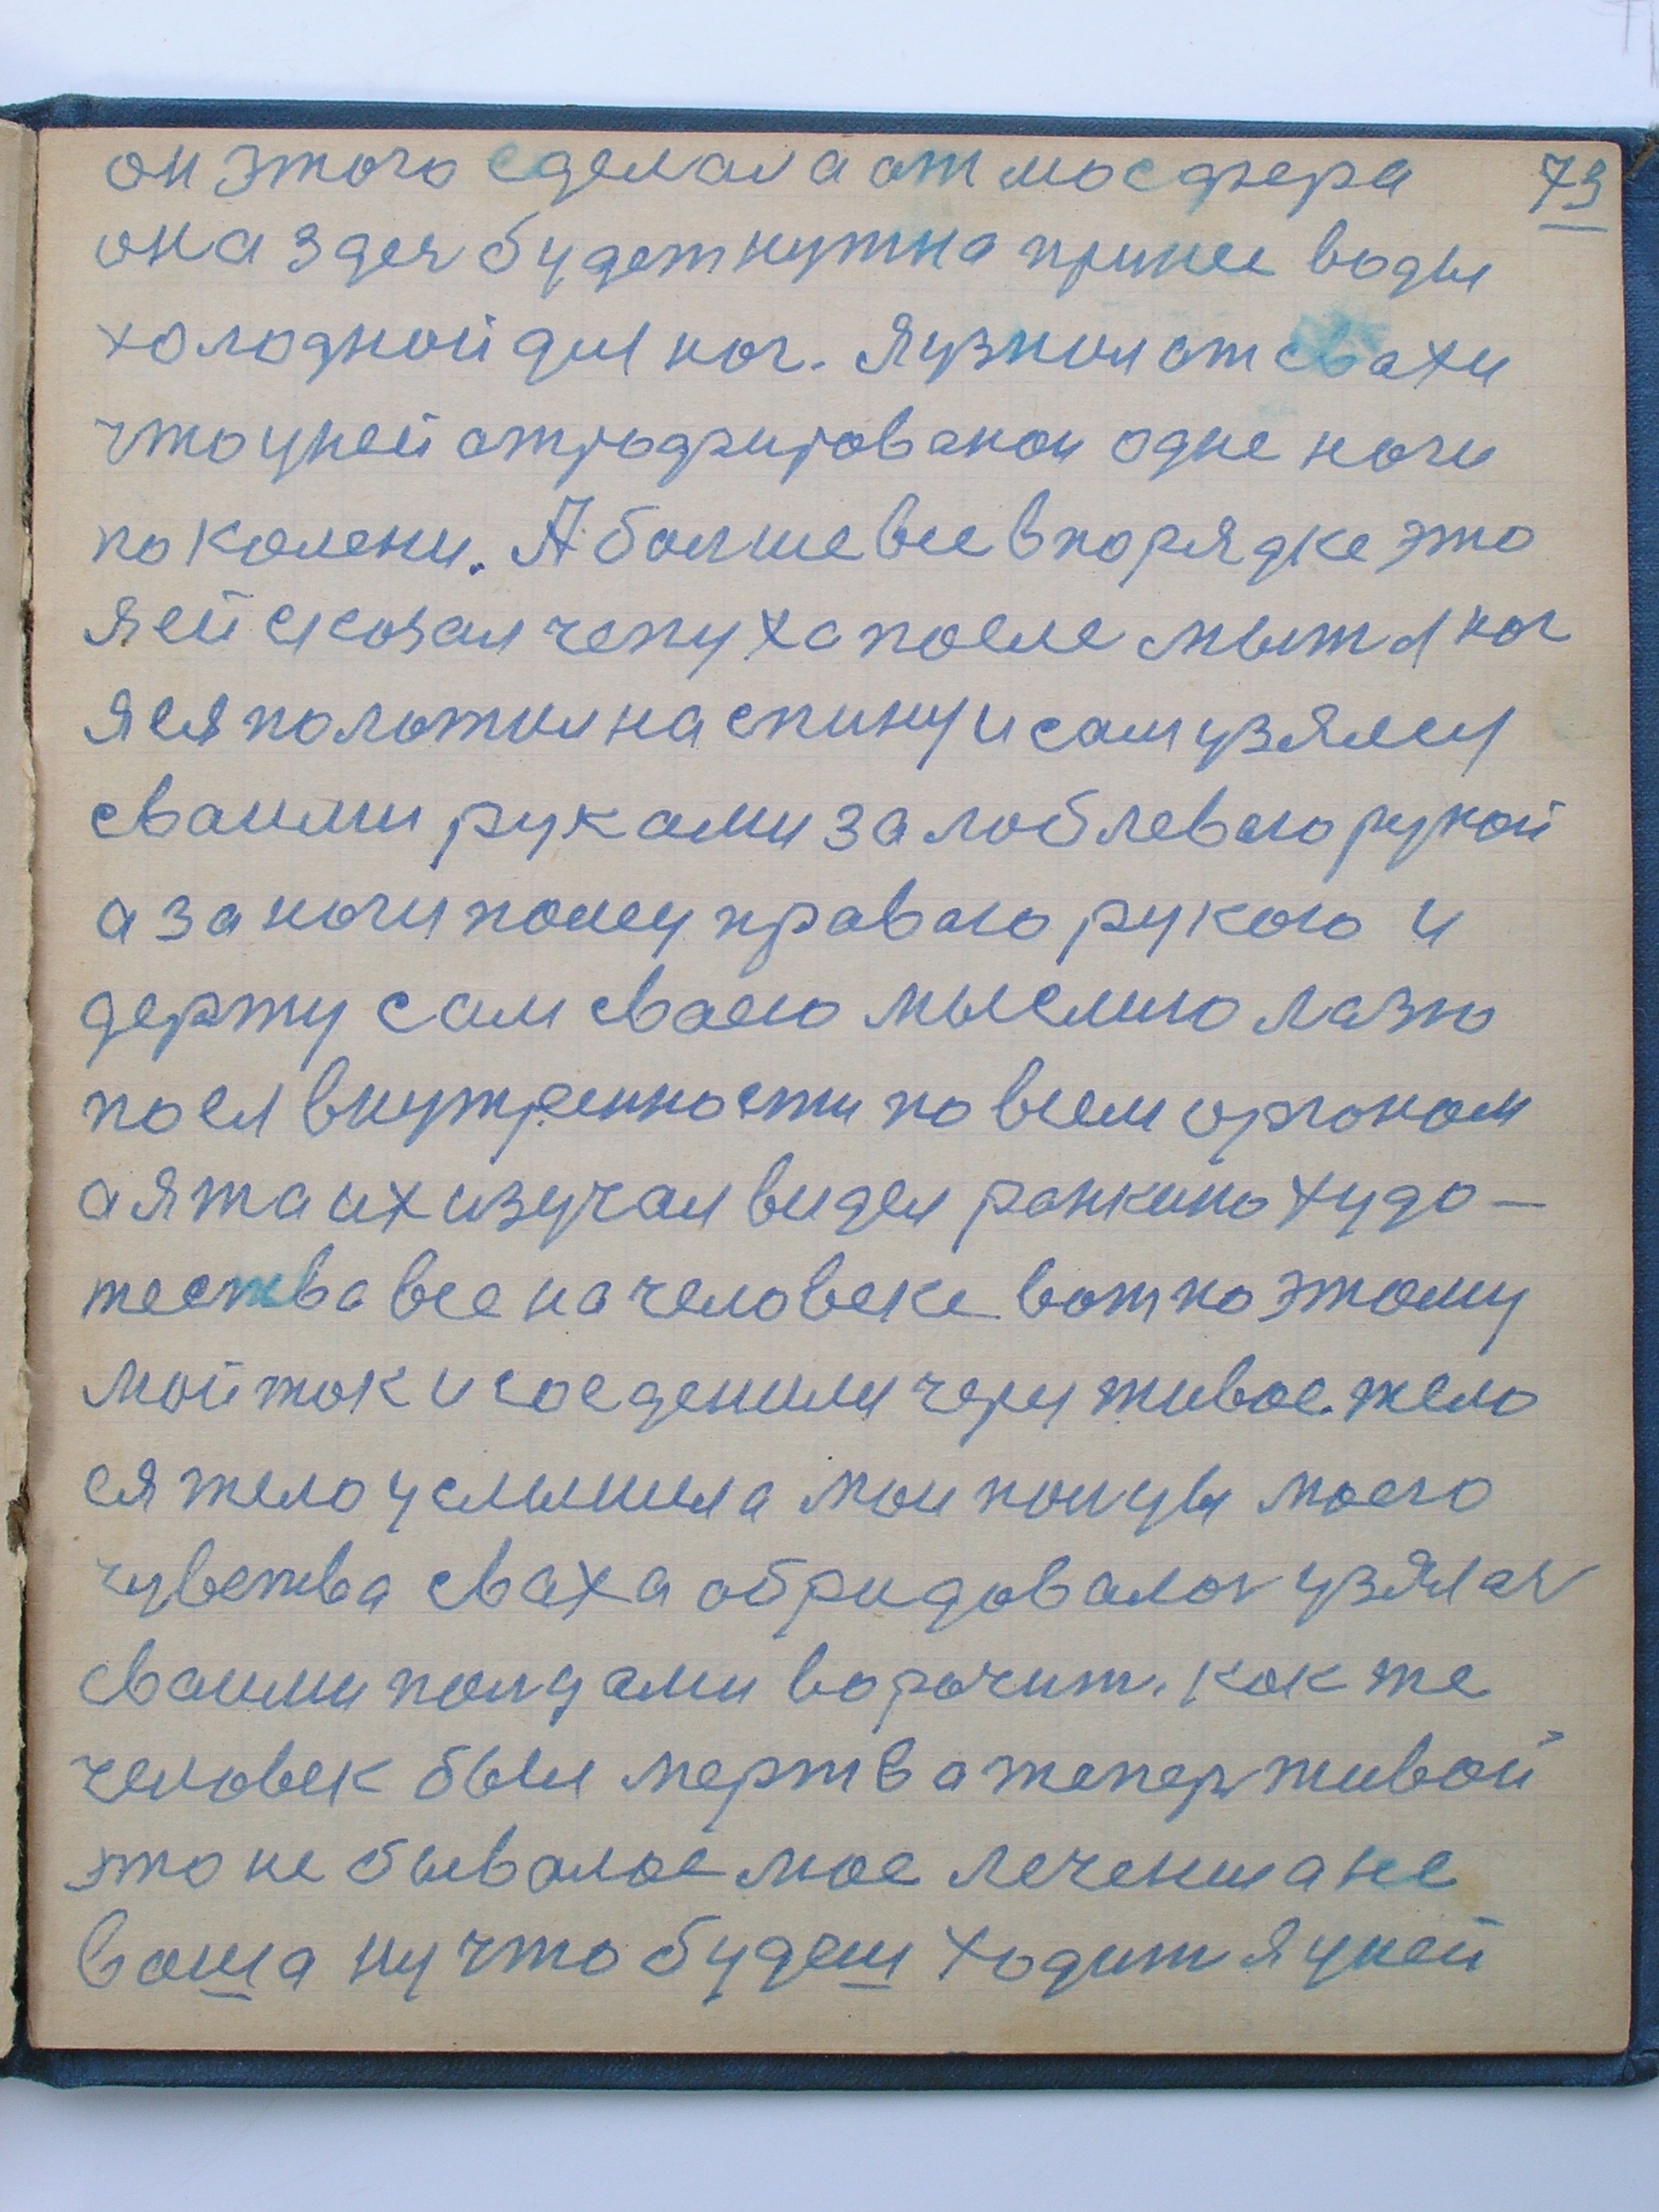 он этого сделала атмосфера 73
она здеч будет нужна принес воды
холодной для ног. Я узнал от свахи
что у ней атрофированои одне ноги
по колени. А болше все в порядке это
я ей сказал чепуха после мытя ног
я ея положил на спину и сам узялся
своими руками за лоб левою рукой
а за ноги полцу правою рукою и
держу сам своею мыслию лазю
по ея внутренности по всем органом
а я та их изучал видел ранкино худо-
жества все на человеке вот поэтому
мой ток и соеденили чери живое тело
ея тело услышила мои полцы моего
чувства сваха обрадовалас узялас
своими полцами ворочит. Как же
человек был мертв а тепер живой
это не бывалое мое лечения не
ваша ну что будеш ходит я у ней